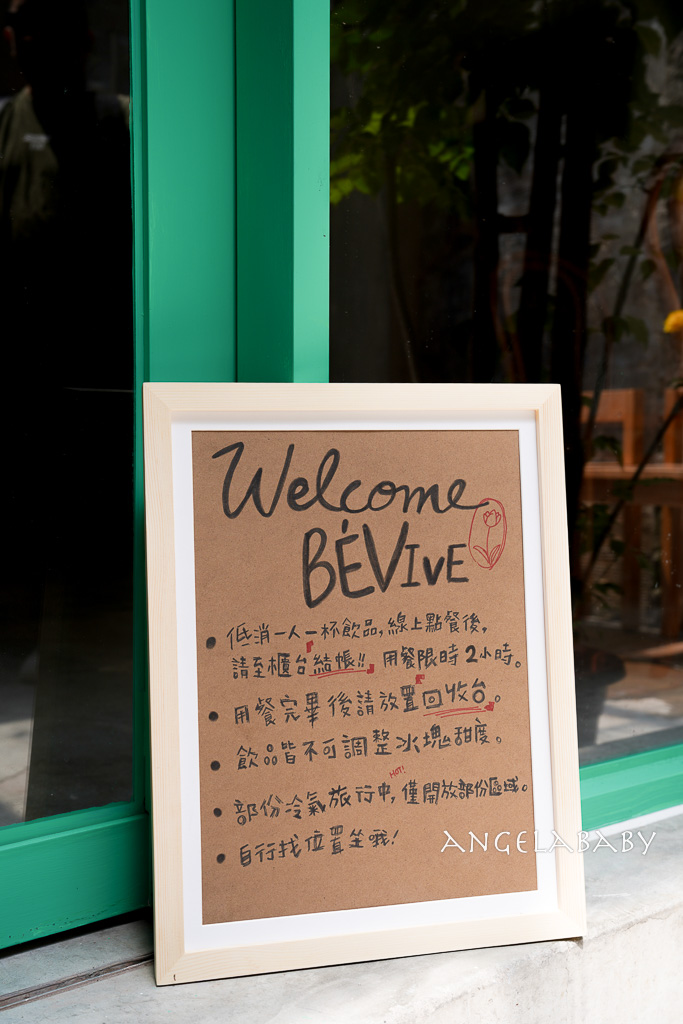 Welcome
BÉVIVE
• 低消一人一杯飲品,線上點餐後,
請至櫃台結帳!! 用餐限時2小時。
• 用餐完畢後請放置回收台。
• 飲品皆不可調整冰塊甜度。
HOT!
• 部份冷氣旅行中,僅開放部份區域。
• 自行找位置坐哦!
ANGELABABY